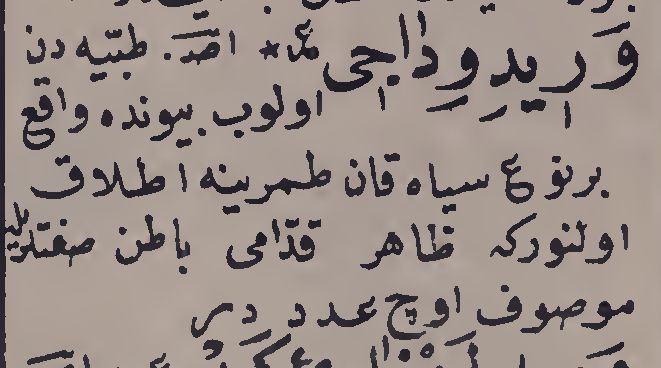 وَرِيدِ وِدَاجِى ع* اصَـ. طبّيه دن
اولوب بيونده واقع
برنوع سياه قان طمرينه اطلاق
اولنوركه ظاهر قدّامى باطن صفتلريله
موصوف اوچ عدد در